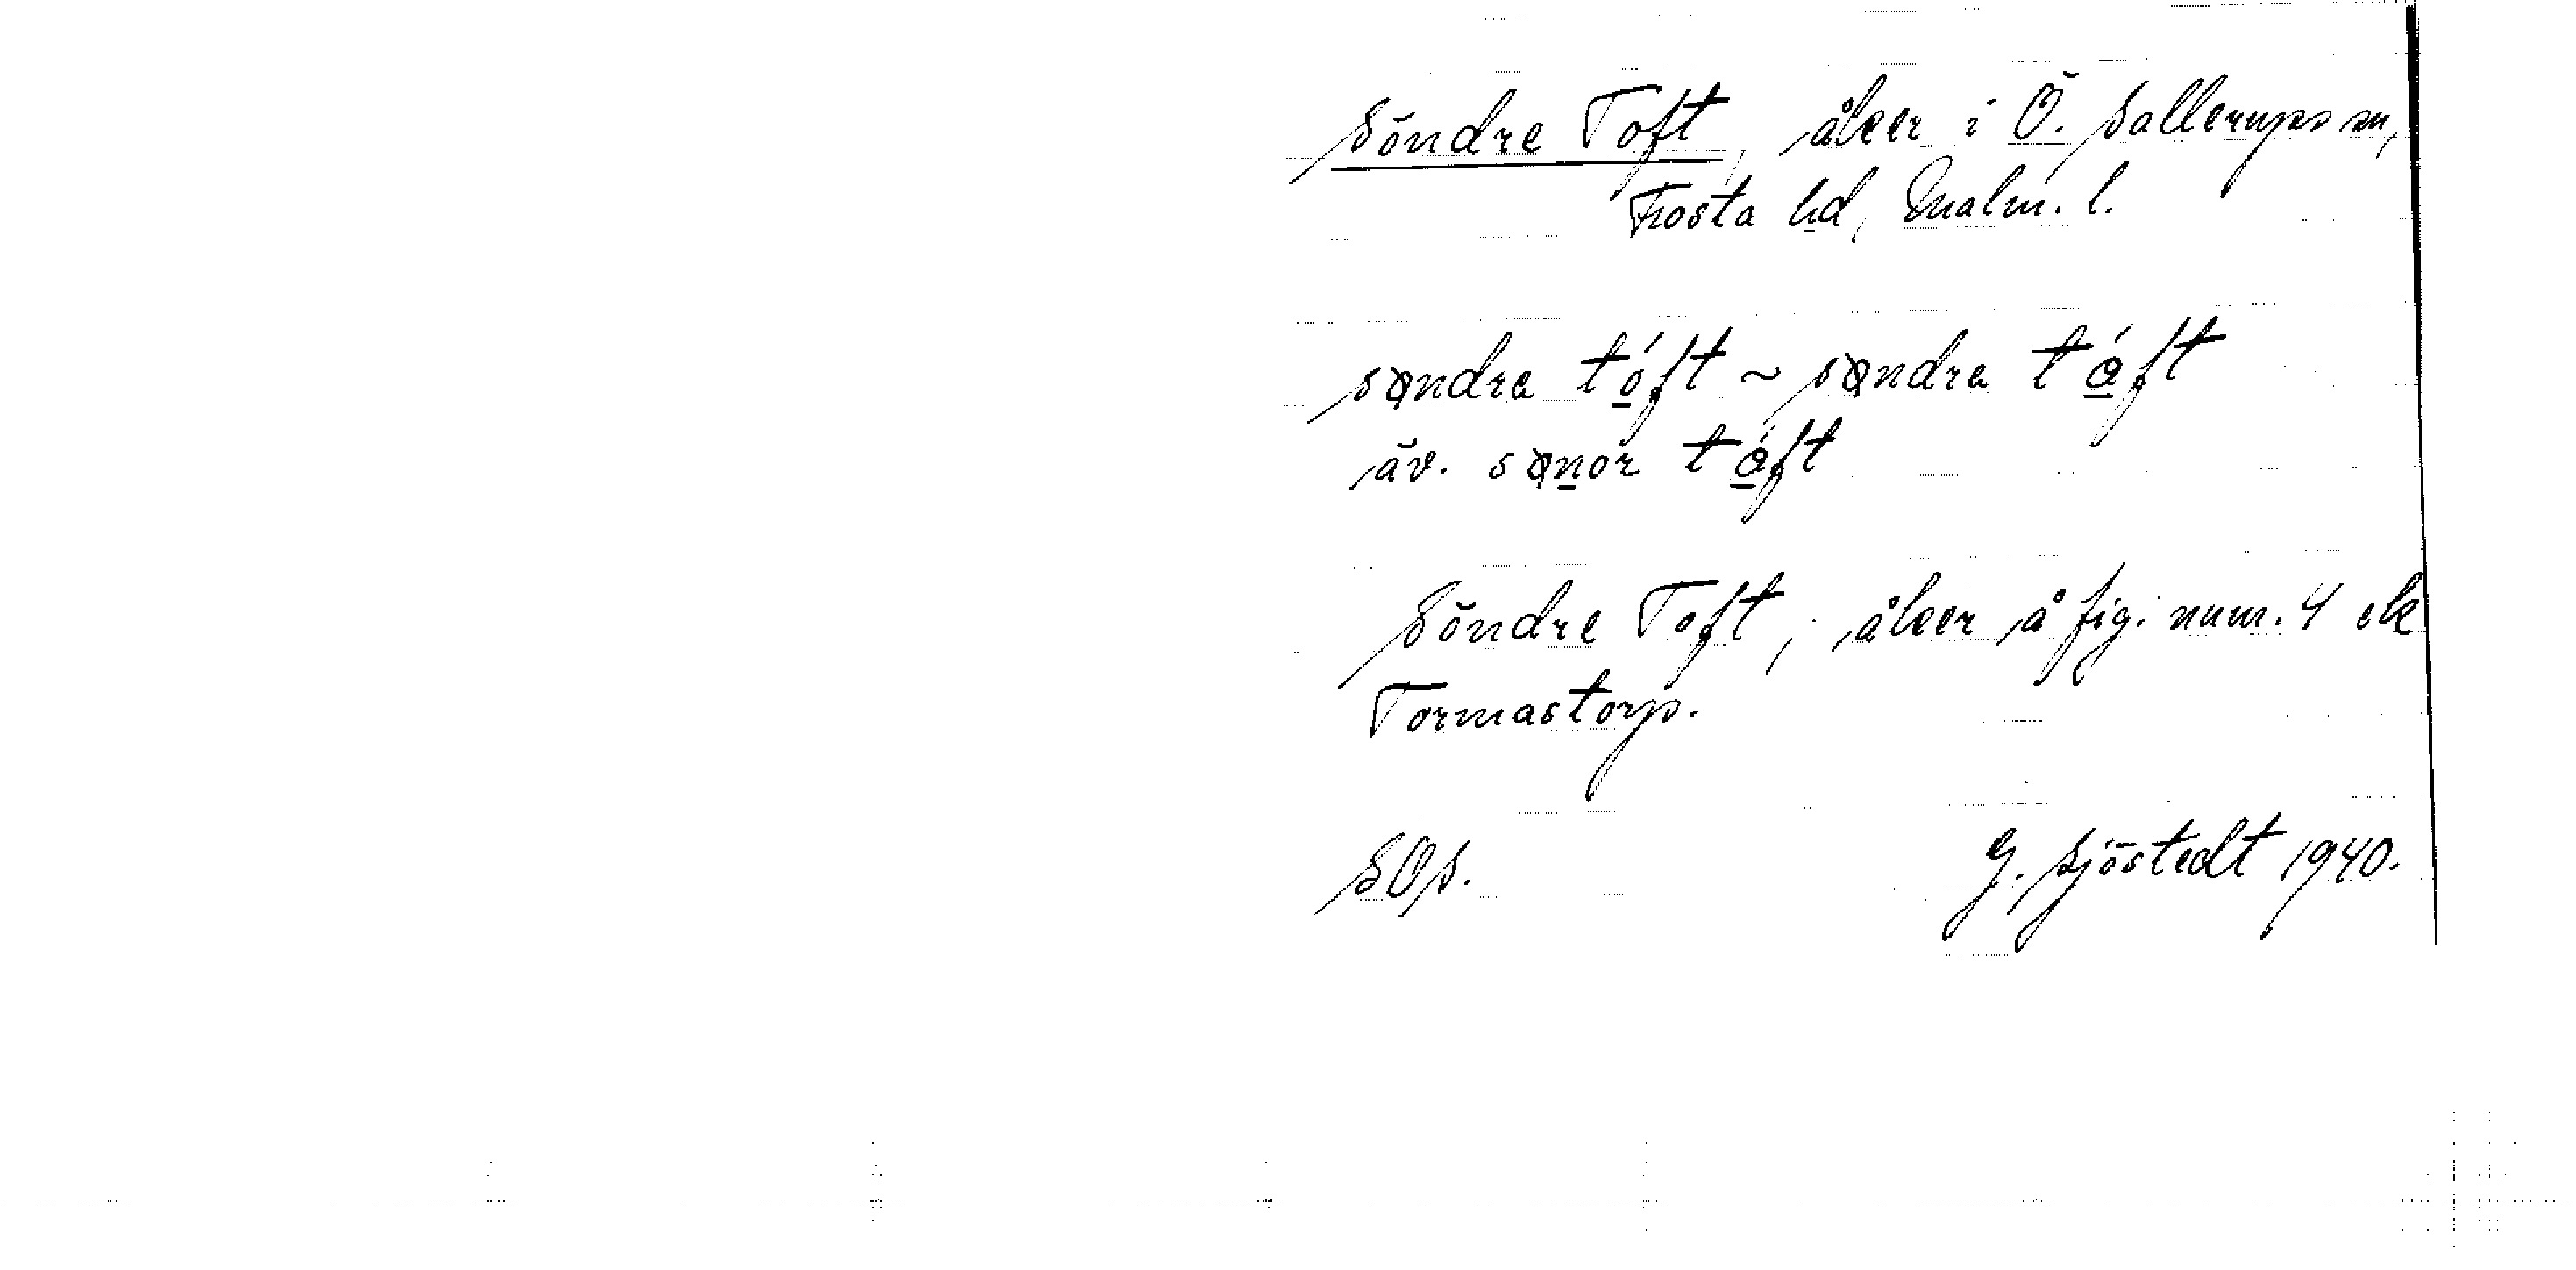 Söndre Toft, åker i Ö. Sallerups sn,
Frosta hd, Malm. l.
søndra tóft ~ søndra tǻft
äv. sønor tǻft
Söndre Toft; åker å fig. num. 4 ek
Tormastorp.
SOS.
G. Sjöstedt 1940.